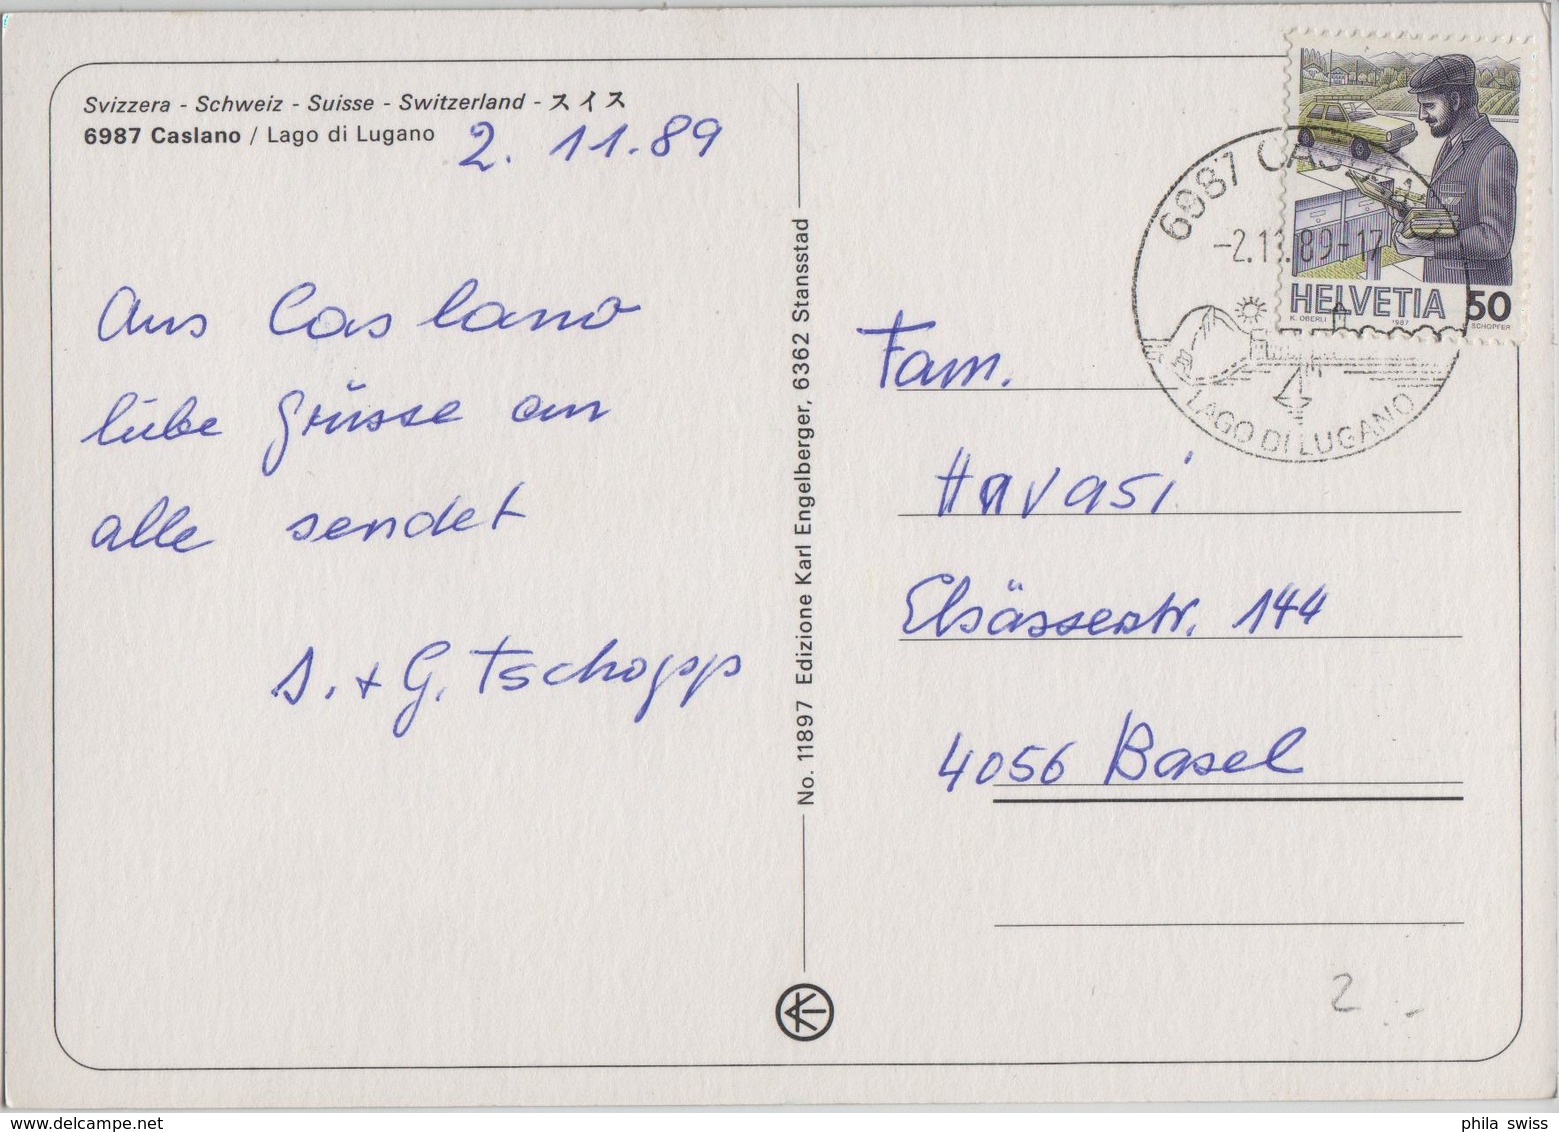 Svizzera - Schweiz - Suisse - Switzerland - スイス
6987 Caslano / Lago di Lugano
2. 11.89
Aus Caslano
liebe Grüsse an
alle sendet
S. + G. Tschopp
No. 11897 Edizione Karl Engelberger, 6362 Stansstad
HELVETIA 50
K. OBERLI 1987 SCHOPFER
6987 CASLANO
-2.11.89-17
LAGO DI LUGANO
Fam.
Havasi
Elsässerstr. 144
4056 Basel
2.-
phila swiss